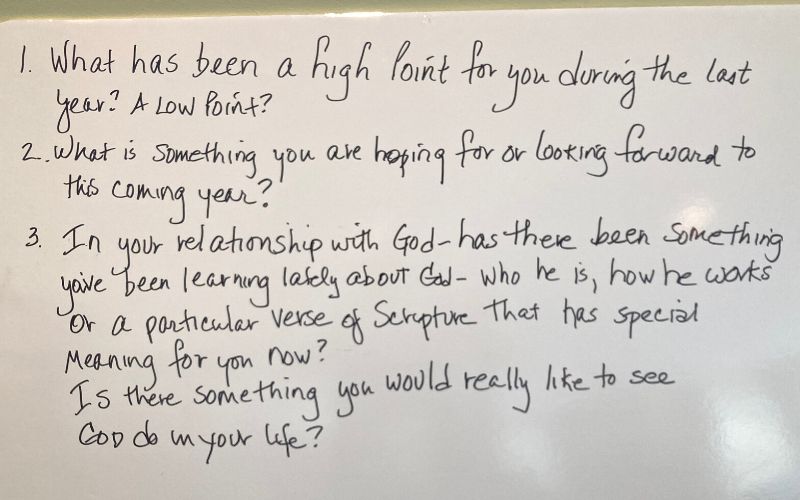 1. What has been a high Point for you during the last
year? A Low Point?
2. What is something you are hoping for or looking forward to
this coming year?
3. In your relationship with God - has there been something
you've been learning lately about God - who he is, how he works
Or a particular verse of Scripture that has special
Meaning for you now?
Is there something you would really like to see
God do in your life?